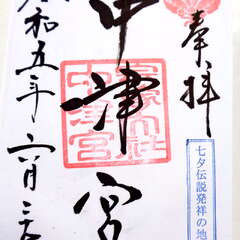 奉拝
七夕伝説発祥の地
中津宮
令和五年六月三